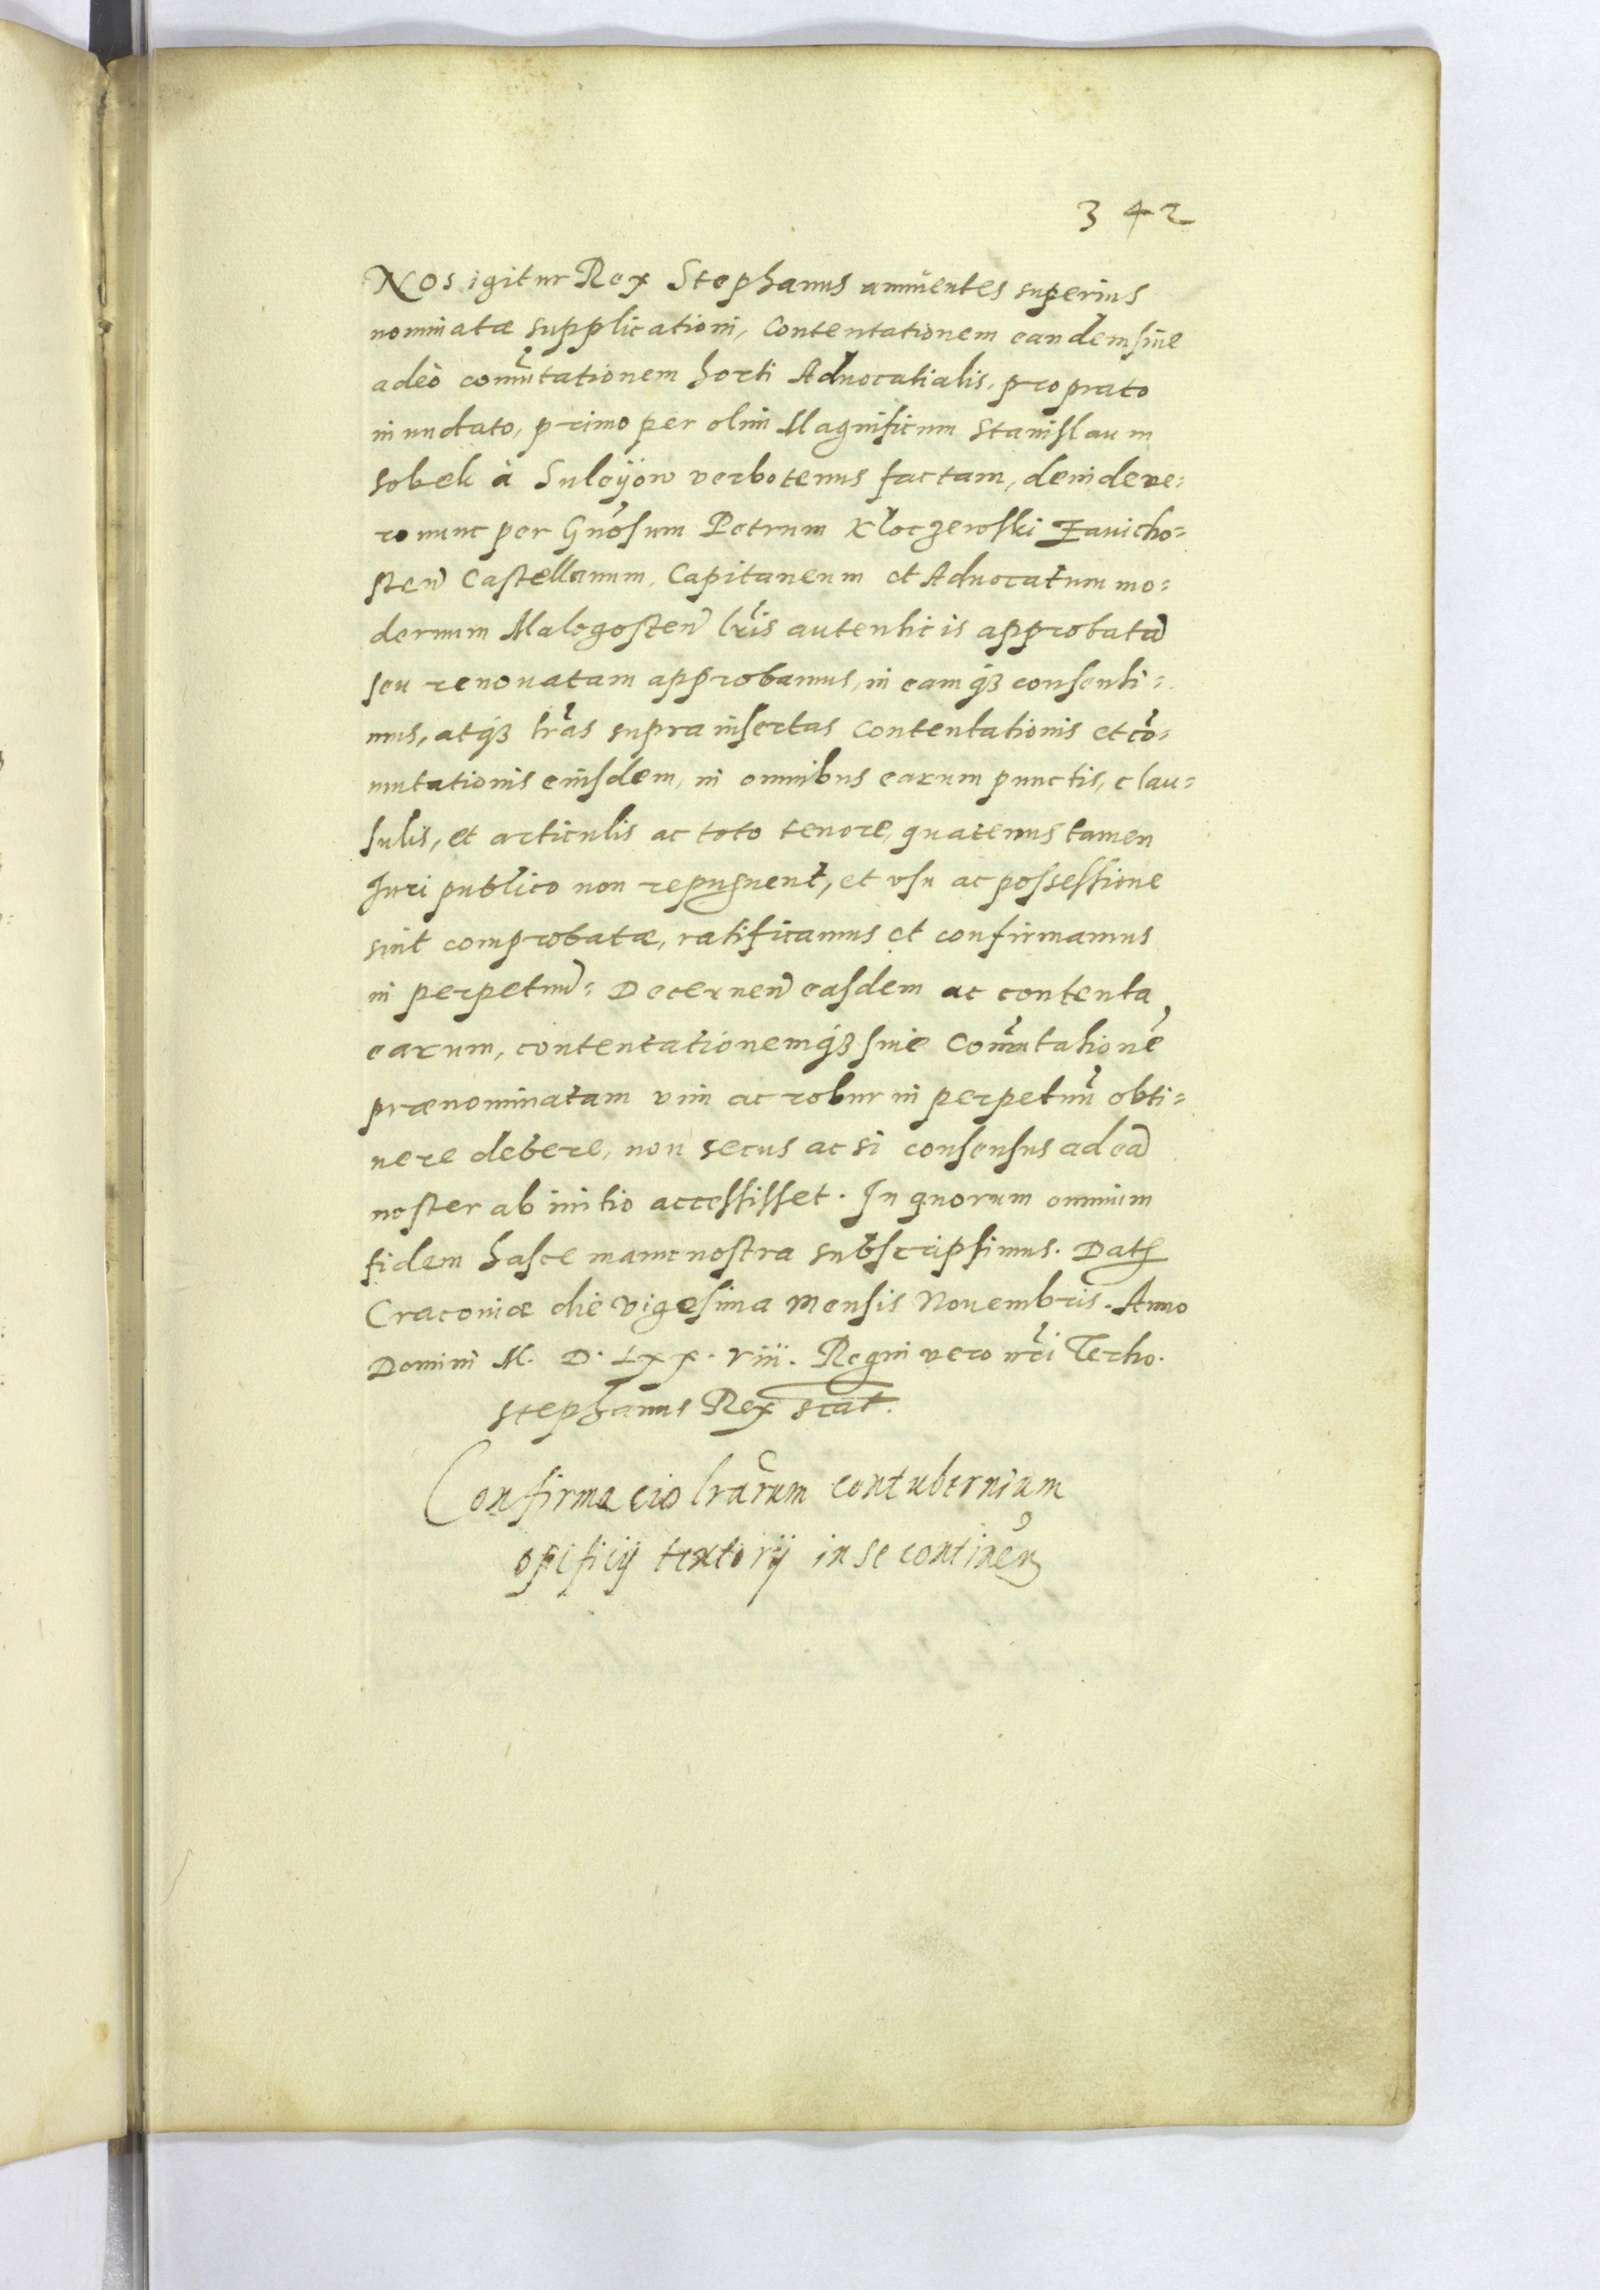 342
Nos igitur Rex Stephanus annuentes superius
nominatæ supplicationi, Contentationem eandem siue
adeò comũtationem horti Aduocatialis, pro prato
inundato, primo per olim Magnificum Stanislaum
Sobek à Suleÿow verbotenus factam, deinde ve=
ro nunc per Gñosum Petrum Kloczewski Zavicho=
sten̄ Castellanum, Capitaneum et Aduocatum mo=
dernum Malogosten̄ lr̃is autenticis approbatā
seu renouatam approbamus, in eamq₃ consenti=
mus, atq₃ lr̃as supra insertas Contentationis et cõ=
mutationis eiusdem, in omnibus earum punctis, clau=
sulis, et articulis ac toto tenore, quatenus tamen
Juri publico non repugnent, et vsu ac possessione
sint comprobatæ, ratificamus et confirmamus
in perpetuū: Decernen̄ easdem ac contenta
earum, contentationemq₃ siue Com̃utationẽ
prænominatam vim ac robur in perpetuũ obti=
nere debere, non secus ac si consensus ad eā
noster ab initio accessisset. In quorum omnium
fidem hasce manu nostra subscripsimus. Datꝭ
Cracouiæ die vigesima Mensis Nouembris. Anno
Domini M. D. Lxx. viii. Regni vero nr̃i Tertio.
Stephanus Rex scat.
Confirmacio lr̃arum contubernium
opificij textorij in se continen̄